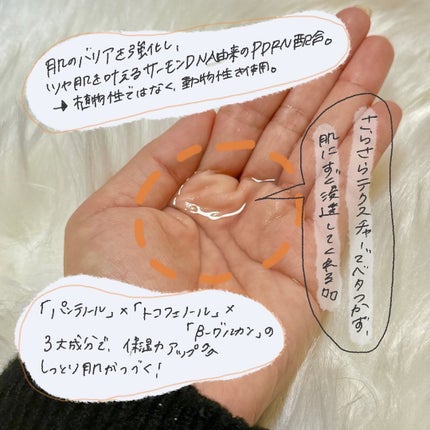 肌のバリアを強化し、
ツヤ肌を叶えるサーモンDNA由来のPDRN配合。
→植物性ではなく、動物性を使用。
さらさらテクスチャーでベタつかず、
肌にすぐ浸透してくれる
「パンテノール」×「トコフェノール」×
「β-グルカン」の
3大成分で、保湿力アップ
しっとり肌がつづく！